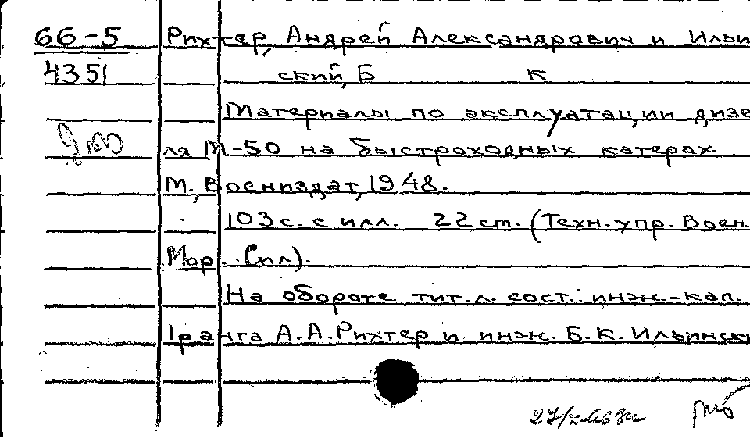 66-5 Рихтер, Андрей Александрович и Ильи
4351 ский, Б К
Материалы по эксплуатации дизе
ля М-50 на быстроходных катерах
М., Воениздат, 1948.
103 с. с илл. 22 см. (Техн. упр. Воен.
Мор. Сил).
На обороте тит. л. сост.: инж.-кап.
1 ранга А.А. Рихтер и инж. Б.К. Ильинск